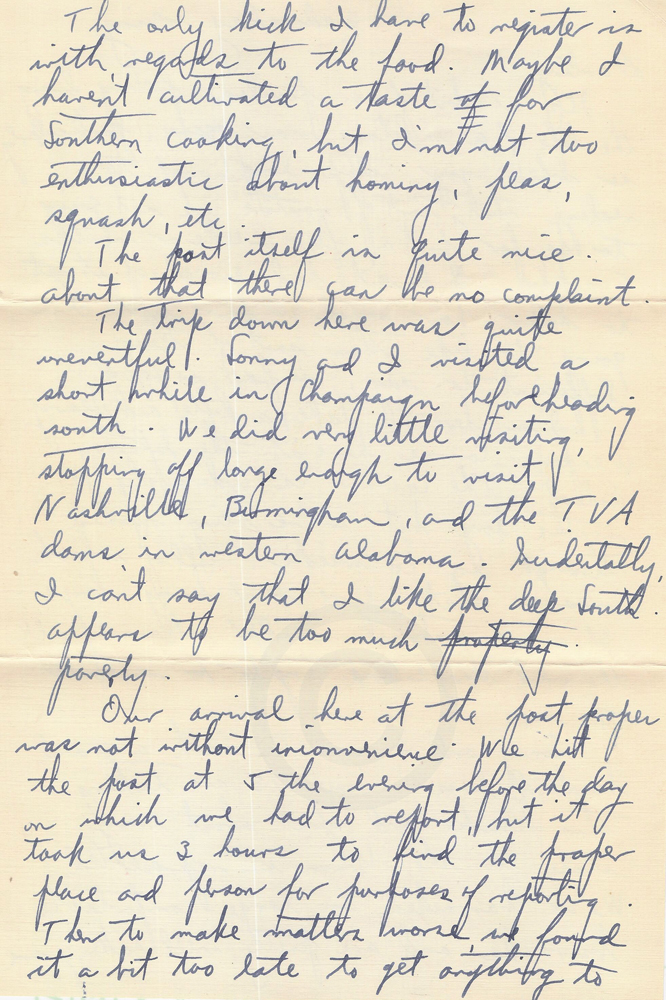 The only kick I have to register is
with regards to the food. Maybe I
haven't cultivated a taste of for
Southern cooking, but I'm not too
enthusiastic about hominy, peas,
squash, etc.
The post itself is quite nice.
about that there can be no complaint.
The trip down here was quite
uneventful. Sonny and I visited a
short while in Champaign before heading
south. We did very little visiting,
stopping off longe enough to visit
Nashville, Birmingham, and the TVA
dams in western Alabama. Incidentally,
I can't say that I like the deep South.
appears to be too much property
poverty.
Our arrival here at the post proper
was not without inconvenience. We hit
the post at 5 the evening before the day
on which we had to report, but it
took us 3 hours to find the proper
place and person for purposes of reporting.
Then to make matters worse, we found
it a bit too late to get anything to